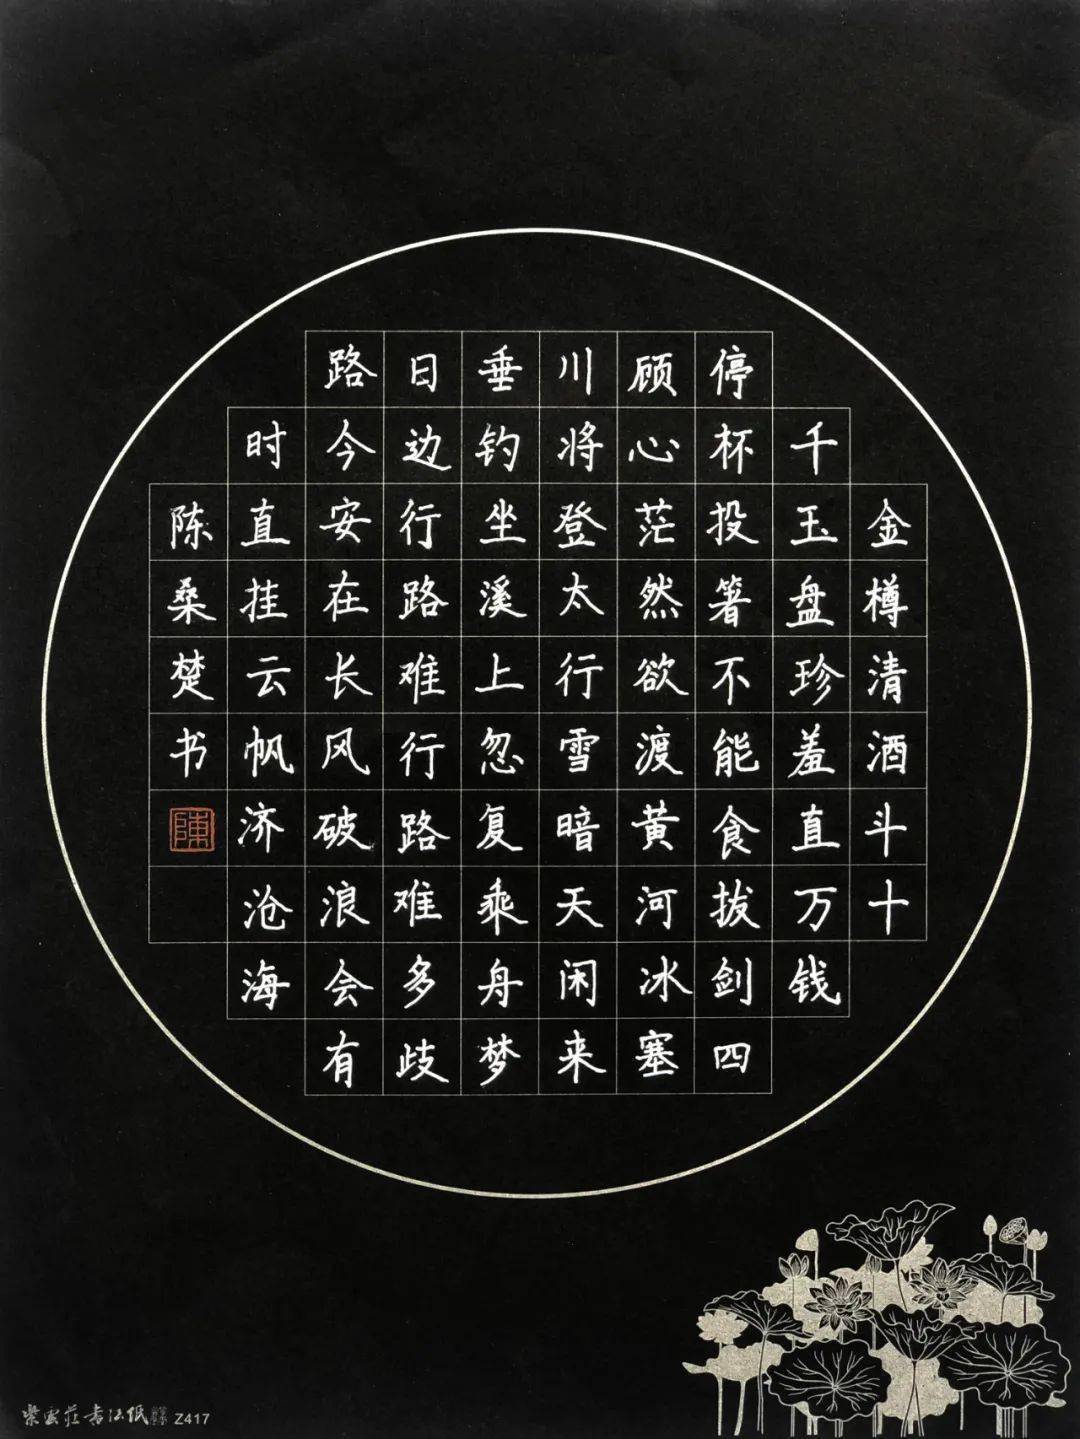 金樽清酒斗十
千玉盘珍羞直万钱
停杯投箸不能食拔剑四
顾心茫然欲渡黄河冰塞
川将登太行雪暗天闲来
垂钓坐溪上忽复乘舟梦
日边行路难行路难多歧
路今安在长风破浪会有
时直挂云帆济沧海
陈桑楚书
陳
紫雲莊书法纸 Z417